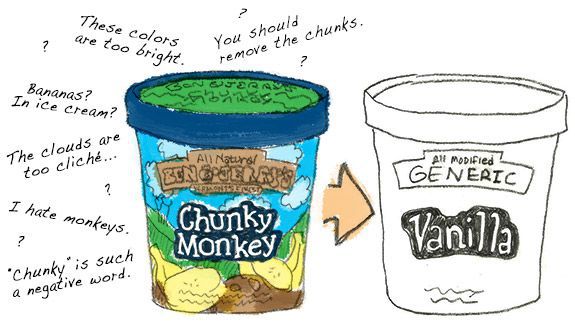 ?
These colors
are too bright.
?
You should
remove the chunks.
?
Bananas?
In ice cream?
The clouds are
too cliché...
?
I hate monkeys.
?
"Chunky" is such
a negative word.
BEN & JERRY'S
Chunky
Monkey
All Natural
BEN & JERRY'S
VERMONT'S FINEST
Chunky
Monkey
All Modified
GENERIC
Vanilla